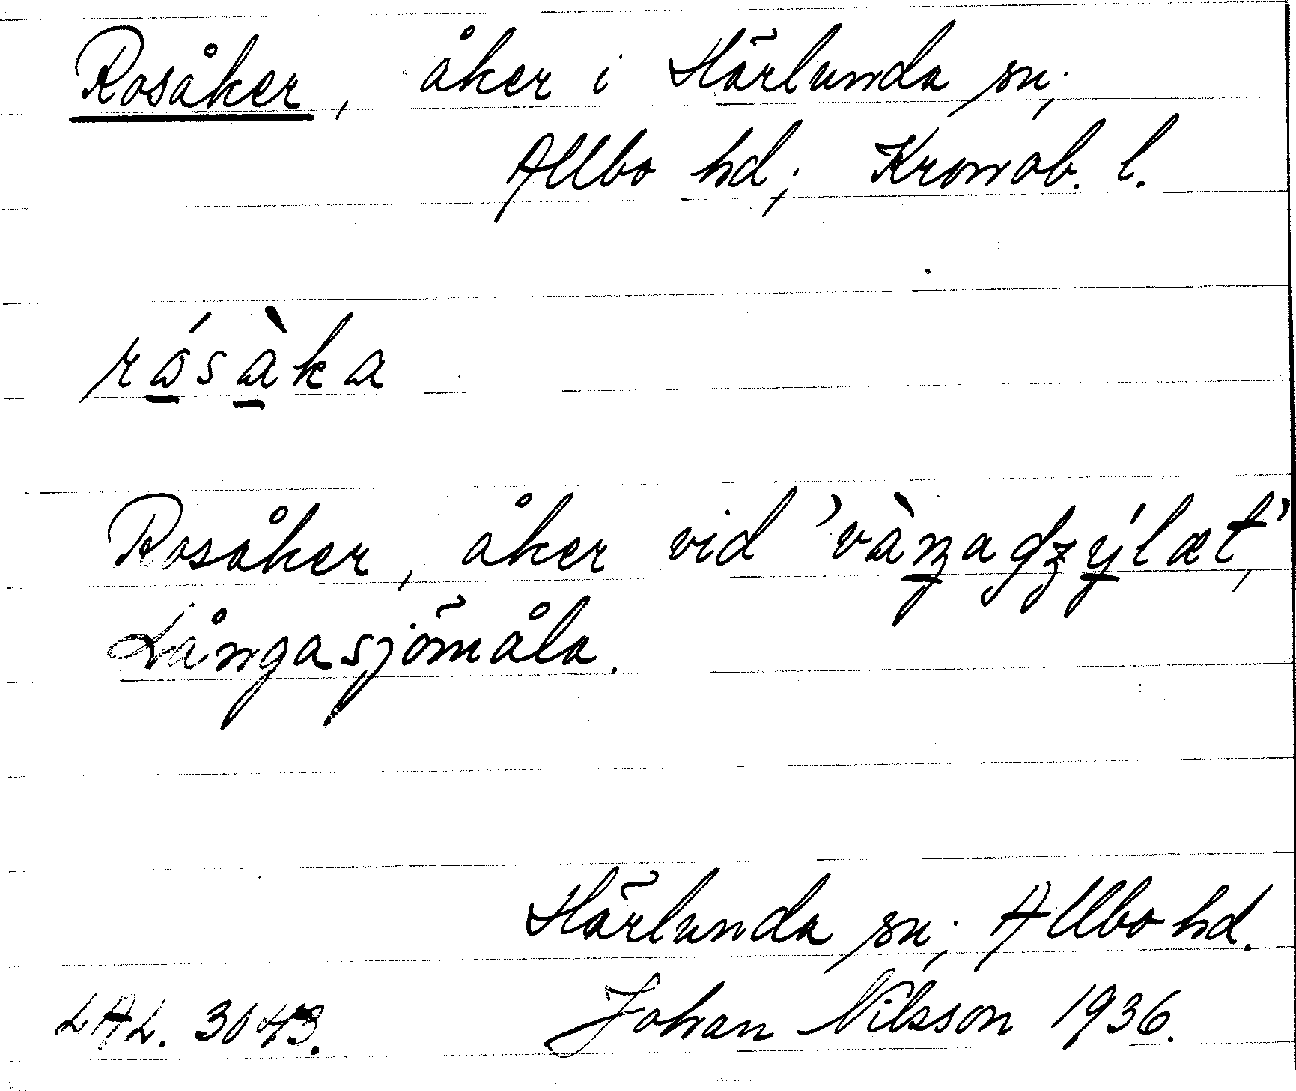 Rosåker, åker i Härlunda sn;
Allbo hd; Kronob. l.
rósàka
Rosåker, åker vid
Långasjömåla.
Härlunda sn; Allbo hd.
LAL. 3043. Johan Nilsson 1936.